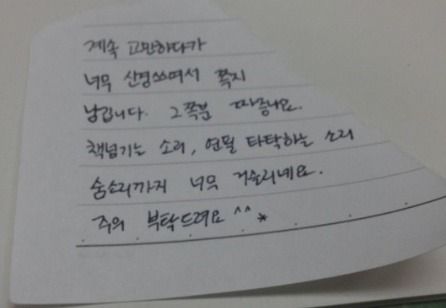 계속 고민하다가
너무 신경쓰여서 쪽지
남깁니다. 그쪽분 짜증나요.
책넘기는 소리, 연필 타탁하는 소리
숨소리까지 너무 거슬리네요.
주의 부탁드려요^^*